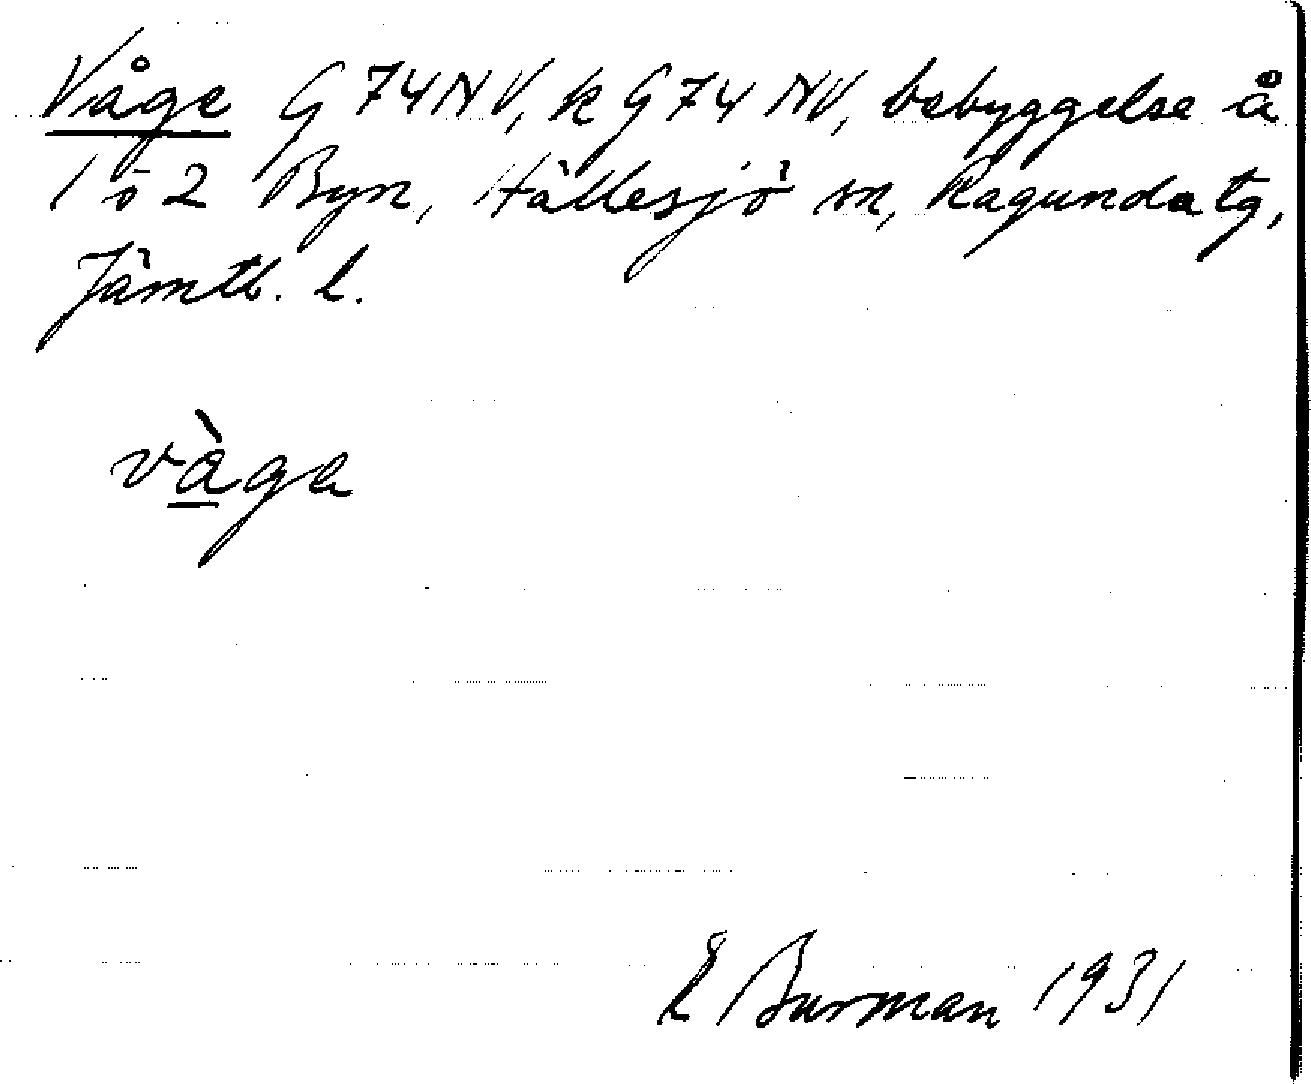 Våge G 74 NV, k G 74 NV, bebyggelse å
1 o 2 Byn, Hällesjö sn, Ragunda tg,
Jämtl. l.
vàga
E Burman 1931